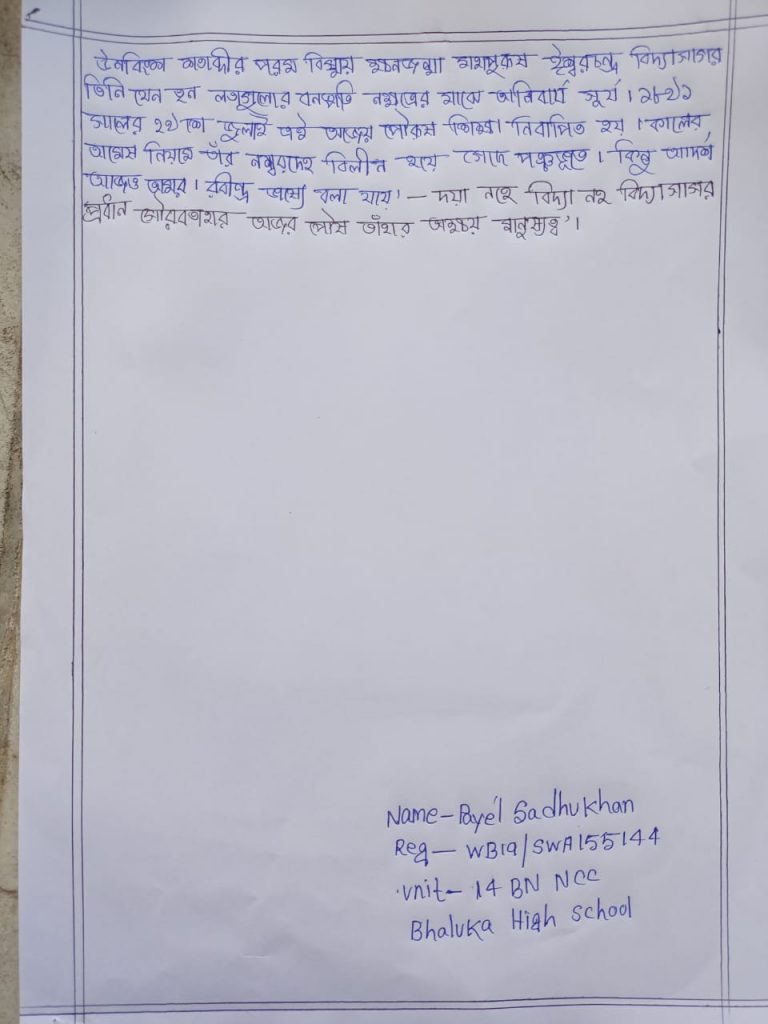 ঊনবিংশ শতাব্দীর পরম বিস্ময় ক্ষণজন্মা মহাপুরুষ ঈশ্বরচন্দ্র বিদ্যাসাগর
তিনি যেন হন লতাগুল্মের বনস্পতি নক্ষত্রের মাঝে অনিবার্য সূর্য। ১৮৯১
সালের ২৯শে জুলাই এই অজেয় পৌরুষ শিখা নির্বাপিত হয়। কালের
নিয়মে তাঁর নশ্বরদেহ বিলীন হয়ে গেছে পঞ্চভূতে। কিন্তু আদর্শ
আজও অমর। রবীন্দ্র ভাষ্যে বলা যায় '— দয়া নহে বিদ্যা নহ বিদ্যাসাগর
প্রধান গৌরব অজেয় পৌরুষ তাঁহার অক্ষয় মনুষ্যত্ব'।
Name- Payel Sadhukhan
Reg — WB19/SWA155144
unit- 14 BN NCC
Bhaluka High School